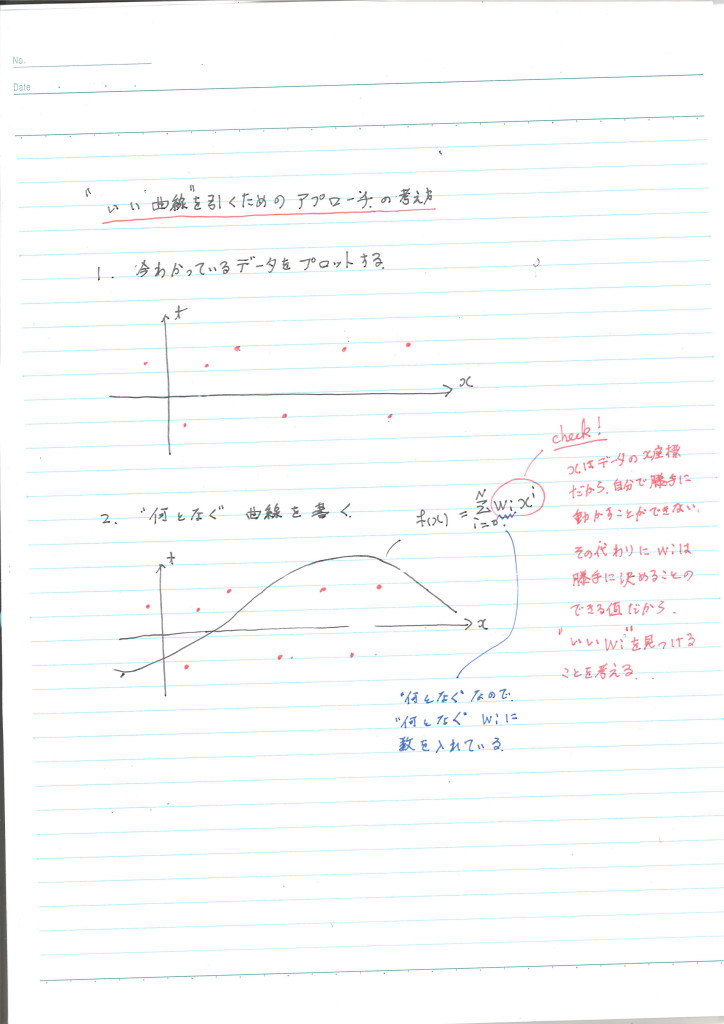 No.
Date
"いい曲線"を引くための アプローチの考え方
1. 今わかっているデータをプロットする.
t
x
check!
xはデータのx座標
だから、自分で勝手に
動かすことができない.
その代わりに wiは
勝手に決めることの
できる値だから.
"いいwi"を見つける
ことを考える..
2. "何となく" 曲線を書く.
f(x) = Σ_{i=0}^{N} wi x^i
t
x
"何となく"なので.
"何となく" wiに
数を入れている.